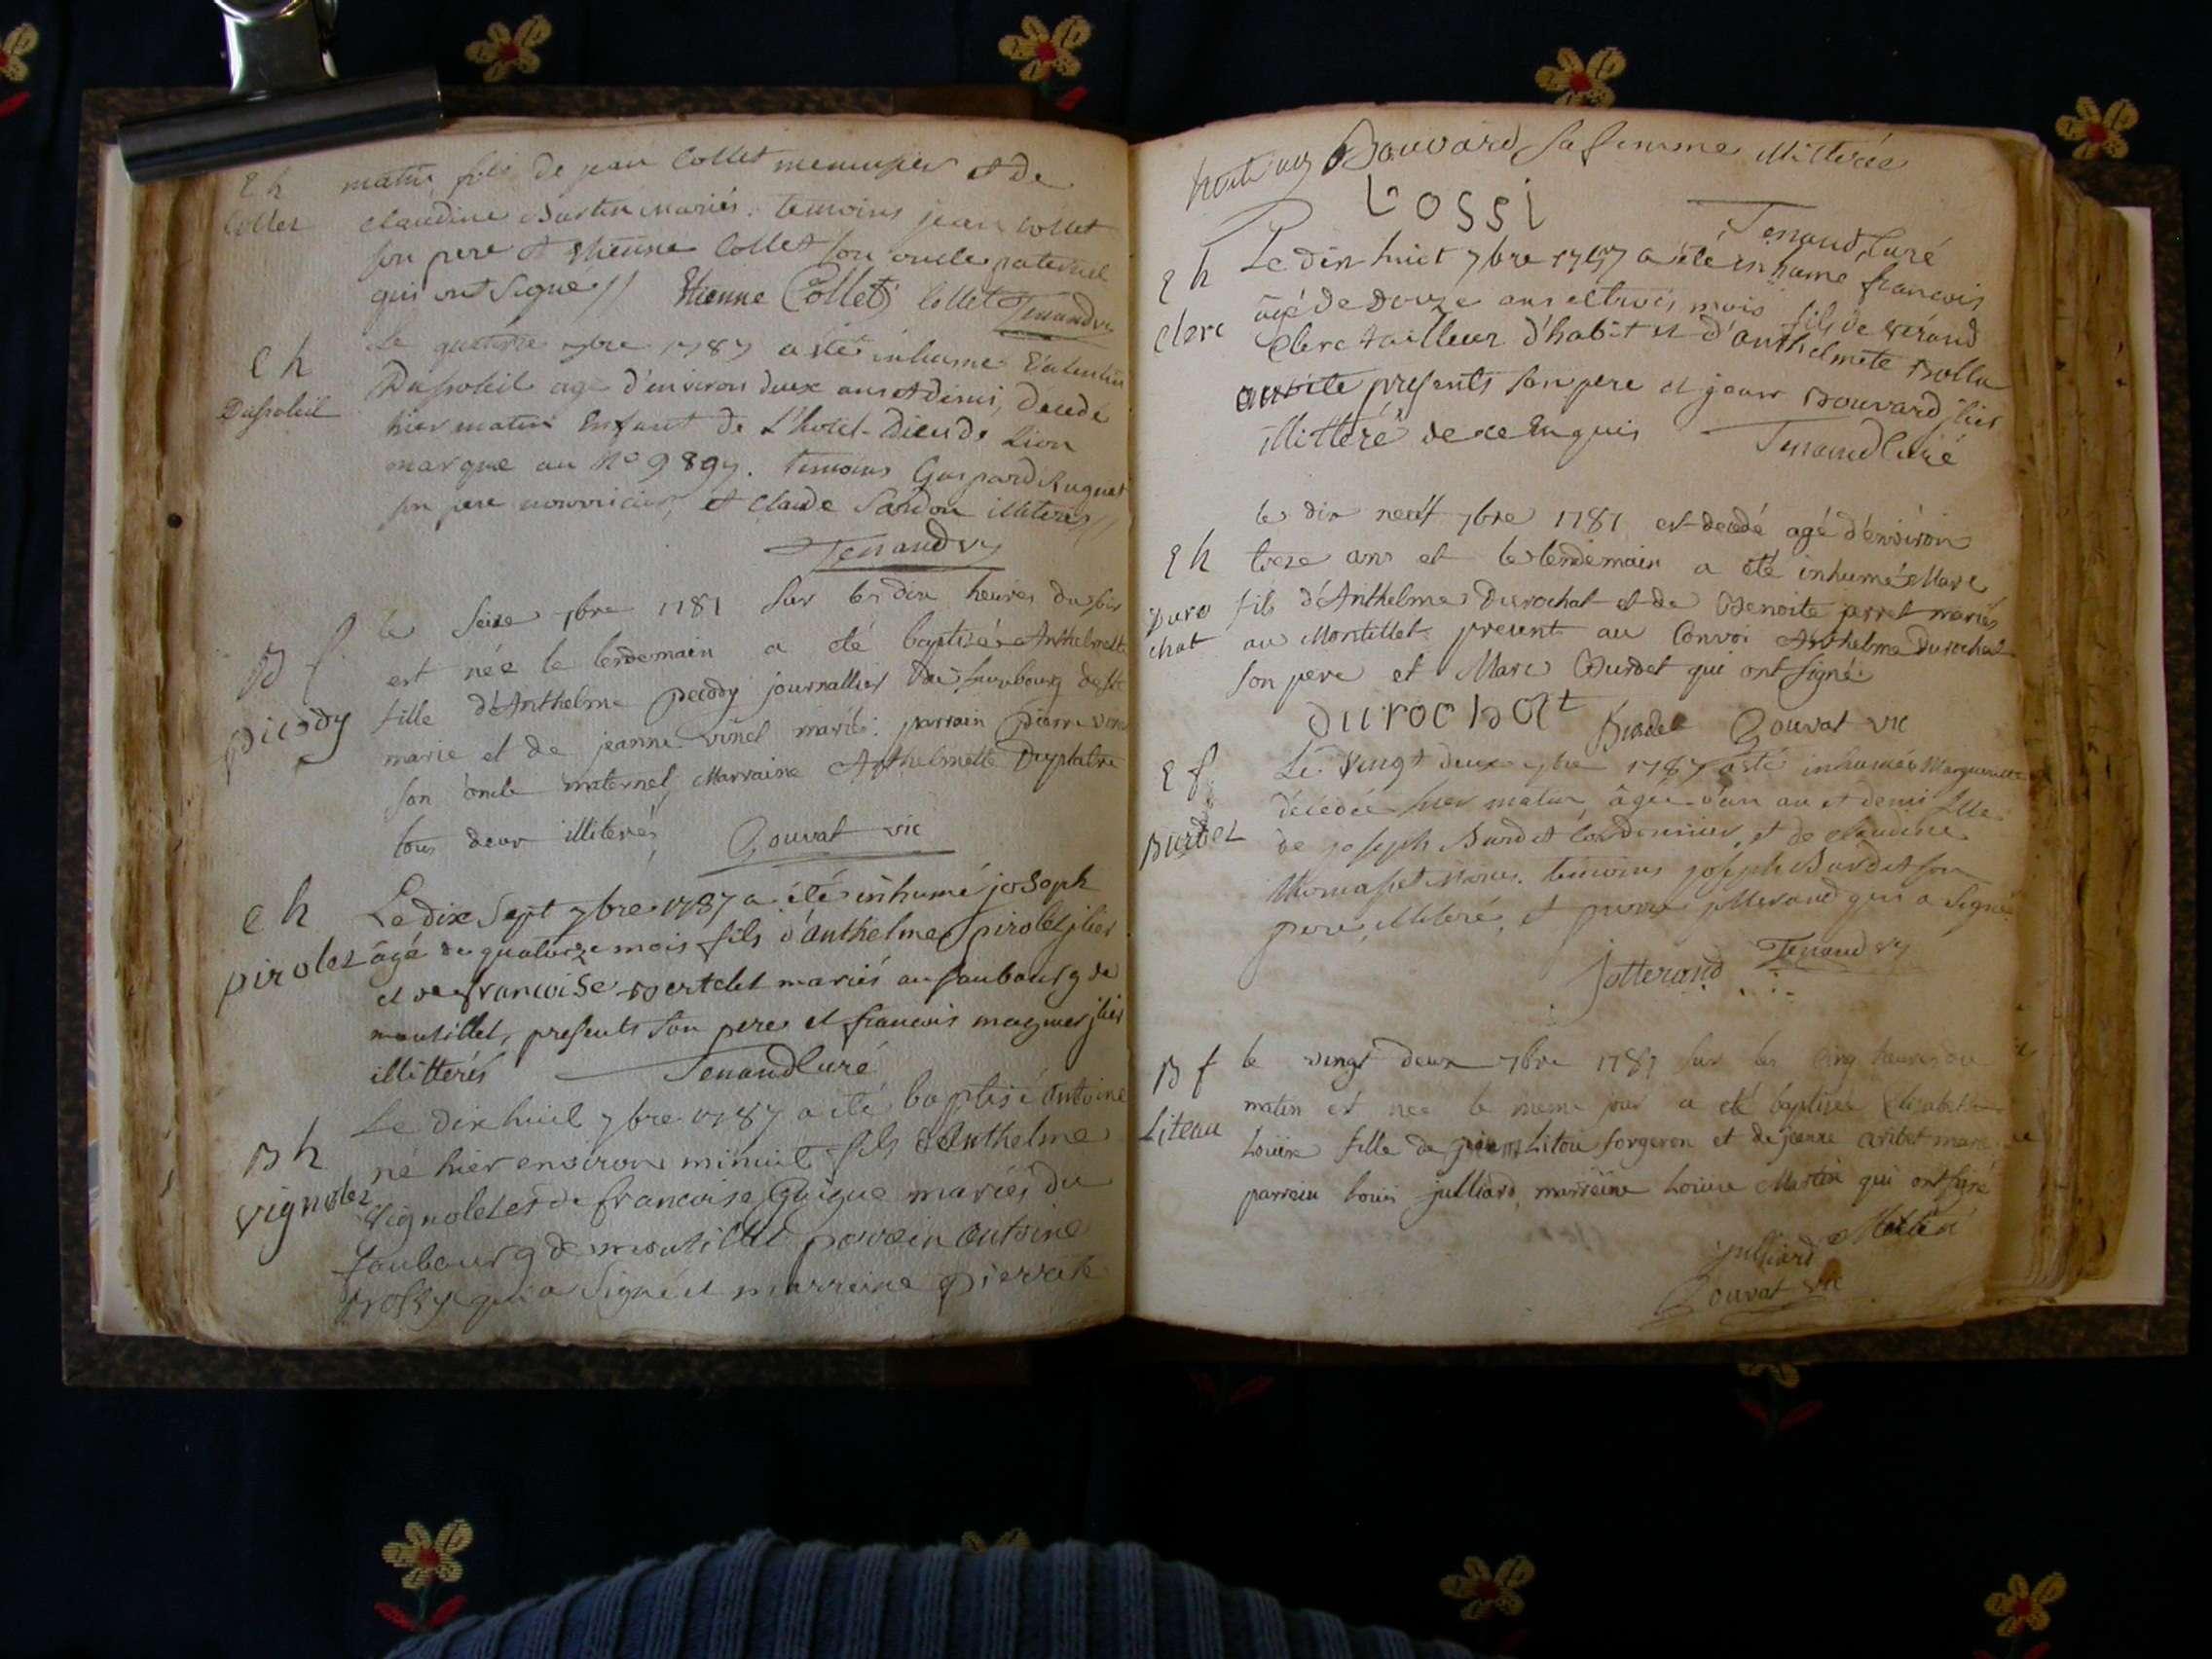 E h
Collet
matin, fils de jean Collet menuisier et de
claudine Burtin mariés. temoins jean Collet
son pere et etienne Collet son oncle paternel
qui ont signé // Etienne Collet Collet Tenand
E h
Dusoleil
Le quatorze 7bre 1787 a eté inhumé Valentin
Dusoleil agé d'environ deux ans et demi, décédé
hier matin Enfant de L'hotel-Dieu de Lion
marque au No 9897. temoins Gaspard Huguet
son pere nourricier, et Claude Sardon illiterés //
Tenand
B f
le seize 7bre 1787 sur les dix heures du soir
est née le lendemain a été baptisée Anthelmette
fille d'Anthelme journallier du fauxbourg de Ste
marie et de jeanne vinet mariés: parrain pierre
son oncle maternel, Marraine Anthelmette
tous deux illiterés, Gouvat vic
e h
pirolet
Le dix sept 7bre 1787 a été inhumé joseph
âgé de quatorze mois fils d'anthelme pirolet jlier
et de francoise Bertelet mariés au faubourg de
montillet, presents son pere et francois jlier
illittérés Tenand Curé
B h
vignolet
Le dix huit 7bre 1787 a été baptisé antoine
né hier environ minuit fils d'Anthelme
vignolet et de francoise Guigue mariés du
faubourg de montillet parrein antoine
qui a Signé et marreine pierrette
Bouvard sa femme illitérée
Lossi
Tenand, Curé
E h
clerc
Le dix huit 7bre 1787 a été inhumé francois
agé de Douze ans et trois mois fils de
clerc tailleur d'habit et d'anthelmete Bollu
presents son pere et jean Bouvard jlier
illitteré de ce Enquis Tenand Curé
E h
Duro
chat
le dix neuf 7bre 1787 est decedé agé d'environ
treze ans et le lendemain a été inhumé Marc
fils d'Anthelme Durochat et de Benoite jarret mariés
au Montillet present au Convoi Anthelme Durochat
son pere et Marc Burdet qui ont signé
durochat Gouvat vic
E f
Burdet
Le vingt deux 7bre 1787 a été inhumée Marguerite
décédée hier matin, âgée d'un an et demi fille
de joseph Burdet Cordonnier, et de claudine
Thomasset mariés. temoins joseph Burdet son
pere, illiteré, et pierre jotterand qui a signé
jotterand Tenand
B f
Liteau
le vingt deux 7bre 1787 sur les Cinq heures du
matin est née le meme jour a été baptisée Elisabeth
Louise fille de forgeron et de jeanne mariés
parrein louis julliard, marreine Louise Martin qui ont signé
julliard
Gouvat vic